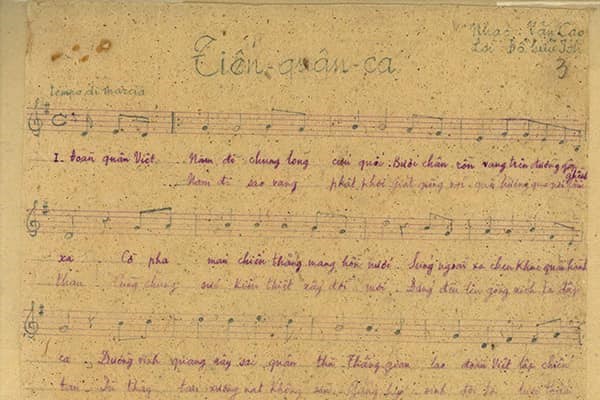 Nhạc Văn Cao
Lời Đỗ Hữu Ích
3
Tiến-quân-ca
tempo di marcia
I. Đoàn quân Việt Nam đi chung lòng cứu quốc. Bước chân rồn vang trên đường gập ghềnh
Nam đi sao vàng phất phới giắt giống nòi quê hương qua nơi lầm
xa. Cờ pha máu chiến thắng mang hồn nước. Súng ngoài xa chen khúc quân hành
than Cùng chung sức kiến thiết xây đời mới. Đứng đều lên gông xích ta đập
ca. Đường vinh quang xây sác quân thù Thắng gian lao đoàn Việt lập chiến
tan. Từ